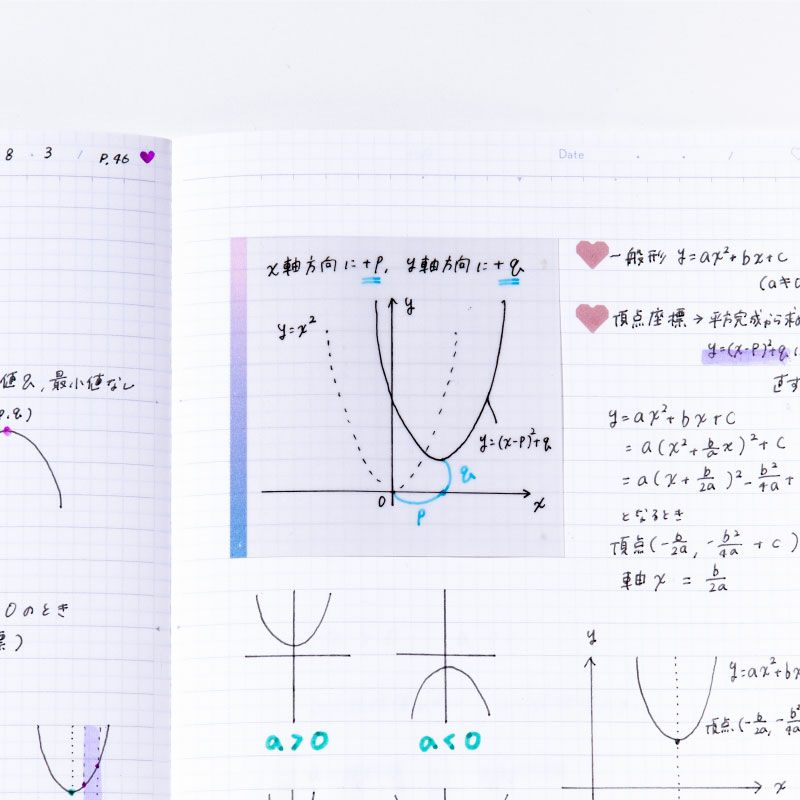 8 . 3 / P.46
値q, 最小値なし
p.q)
0のとき
標)
Date . . /
x軸方向に+p, y軸方向に+q
y
y=x²
y=(x-p)²+q
q
0
x
p
a>0
a<0
一般形 y=ax²+bx+c
(a≠0
頂点座標→平方完成から求め
y=(x-p)²+q に
直す
y=ax²+bx+c
=a(x²+b/a x)²+c
=a(x+b/2a)²-b²/4a+
となるとき
頂点(-b/2a, -b²/4a+c)
軸 x = b/2a
y
y=ax²+bx
頂点(-b/2a, -b²/4a
x